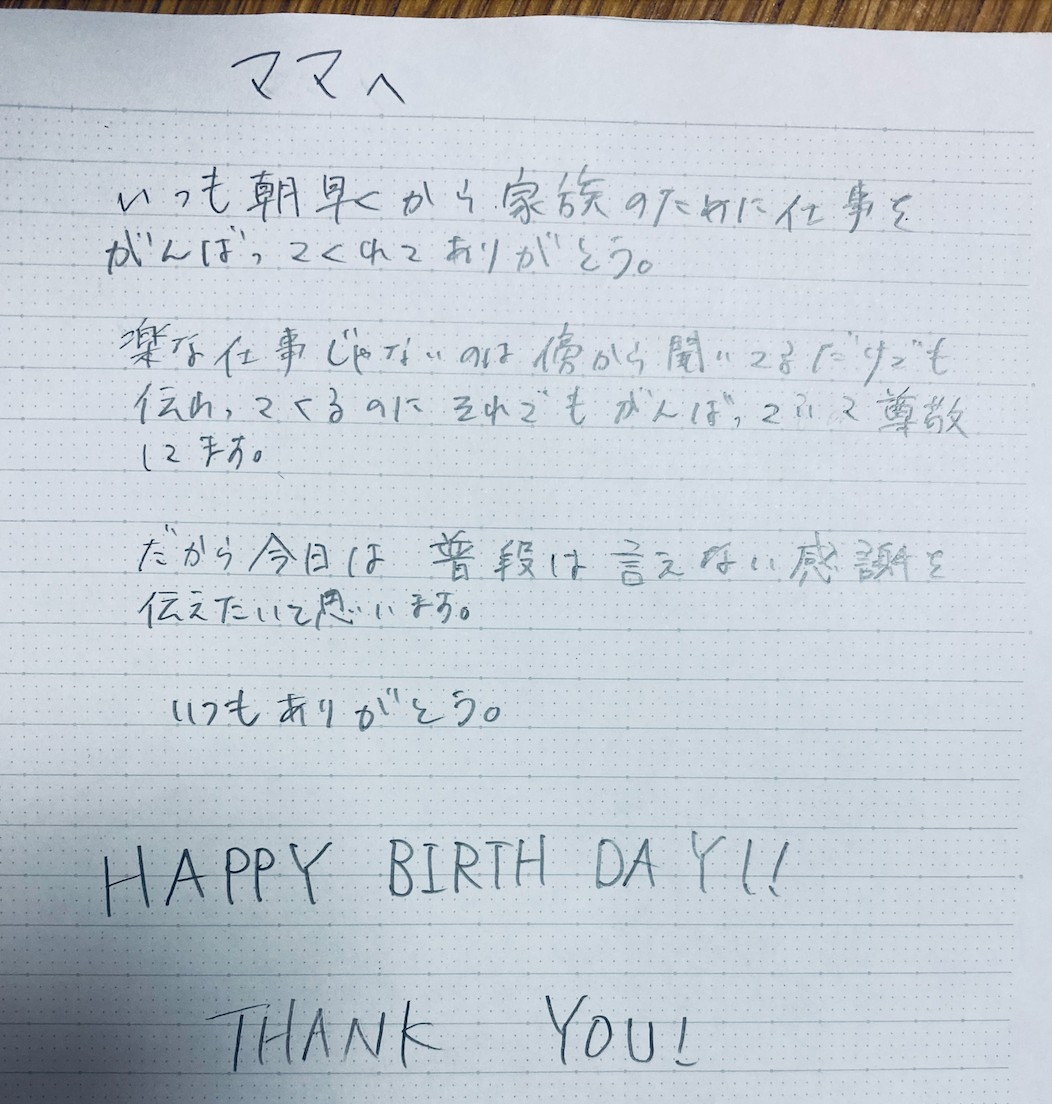 ママへ
いつも朝早くから家族のために仕事を
がんばってくれてありがとう。
楽な仕事じゃないのは傍から聞いてるだけでも
伝わってくるのにそれでもがんばっていて尊敬
してます。
だから今日は普段は言えない感謝を
伝えたいと思います。
いつもありがとう。
HAPPY BIRTH DAY!!
THANK YOU!